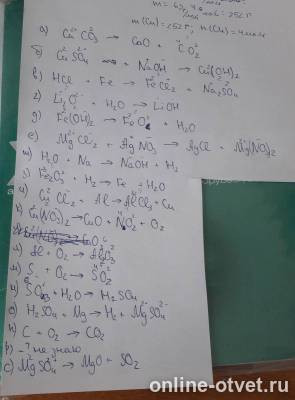 m(Cu) = 252 г;
а) CaCO3 → CaO + CO2
б) CuSO4 + NaOH → Cu(OH)2
+ Na2SO4
в) HCl + Fe → FeCl2 +
г) Li2O + H2O → LiOH
д) Fe(OH)2 → FeO + H2O
е) MgCl2 + AgNO3 → AgCl + Mg(NO3)2
ж) H2O + Na → NaOH + H2
з) Fe2O3 + H2 → Fe + H2O
и) CuCl2 + Al → AlCl3 + Cu
CuO + NO2 + O2
л) Al + O2 → Al2O3
м) S + O2 → SO2
н) SO3 + H2O → H2SO4
о) H2SO4 + Mg → H2 + MgSO4
п) C + O2 → CO2
р) - ? не знаю
с) MgSO4 → MgO + SO2
online-otvet.ru